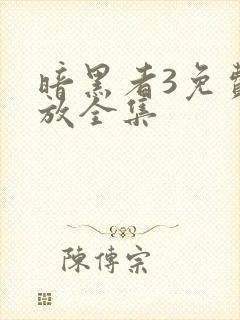 暗黑者3免費
放全集
陳傳宗